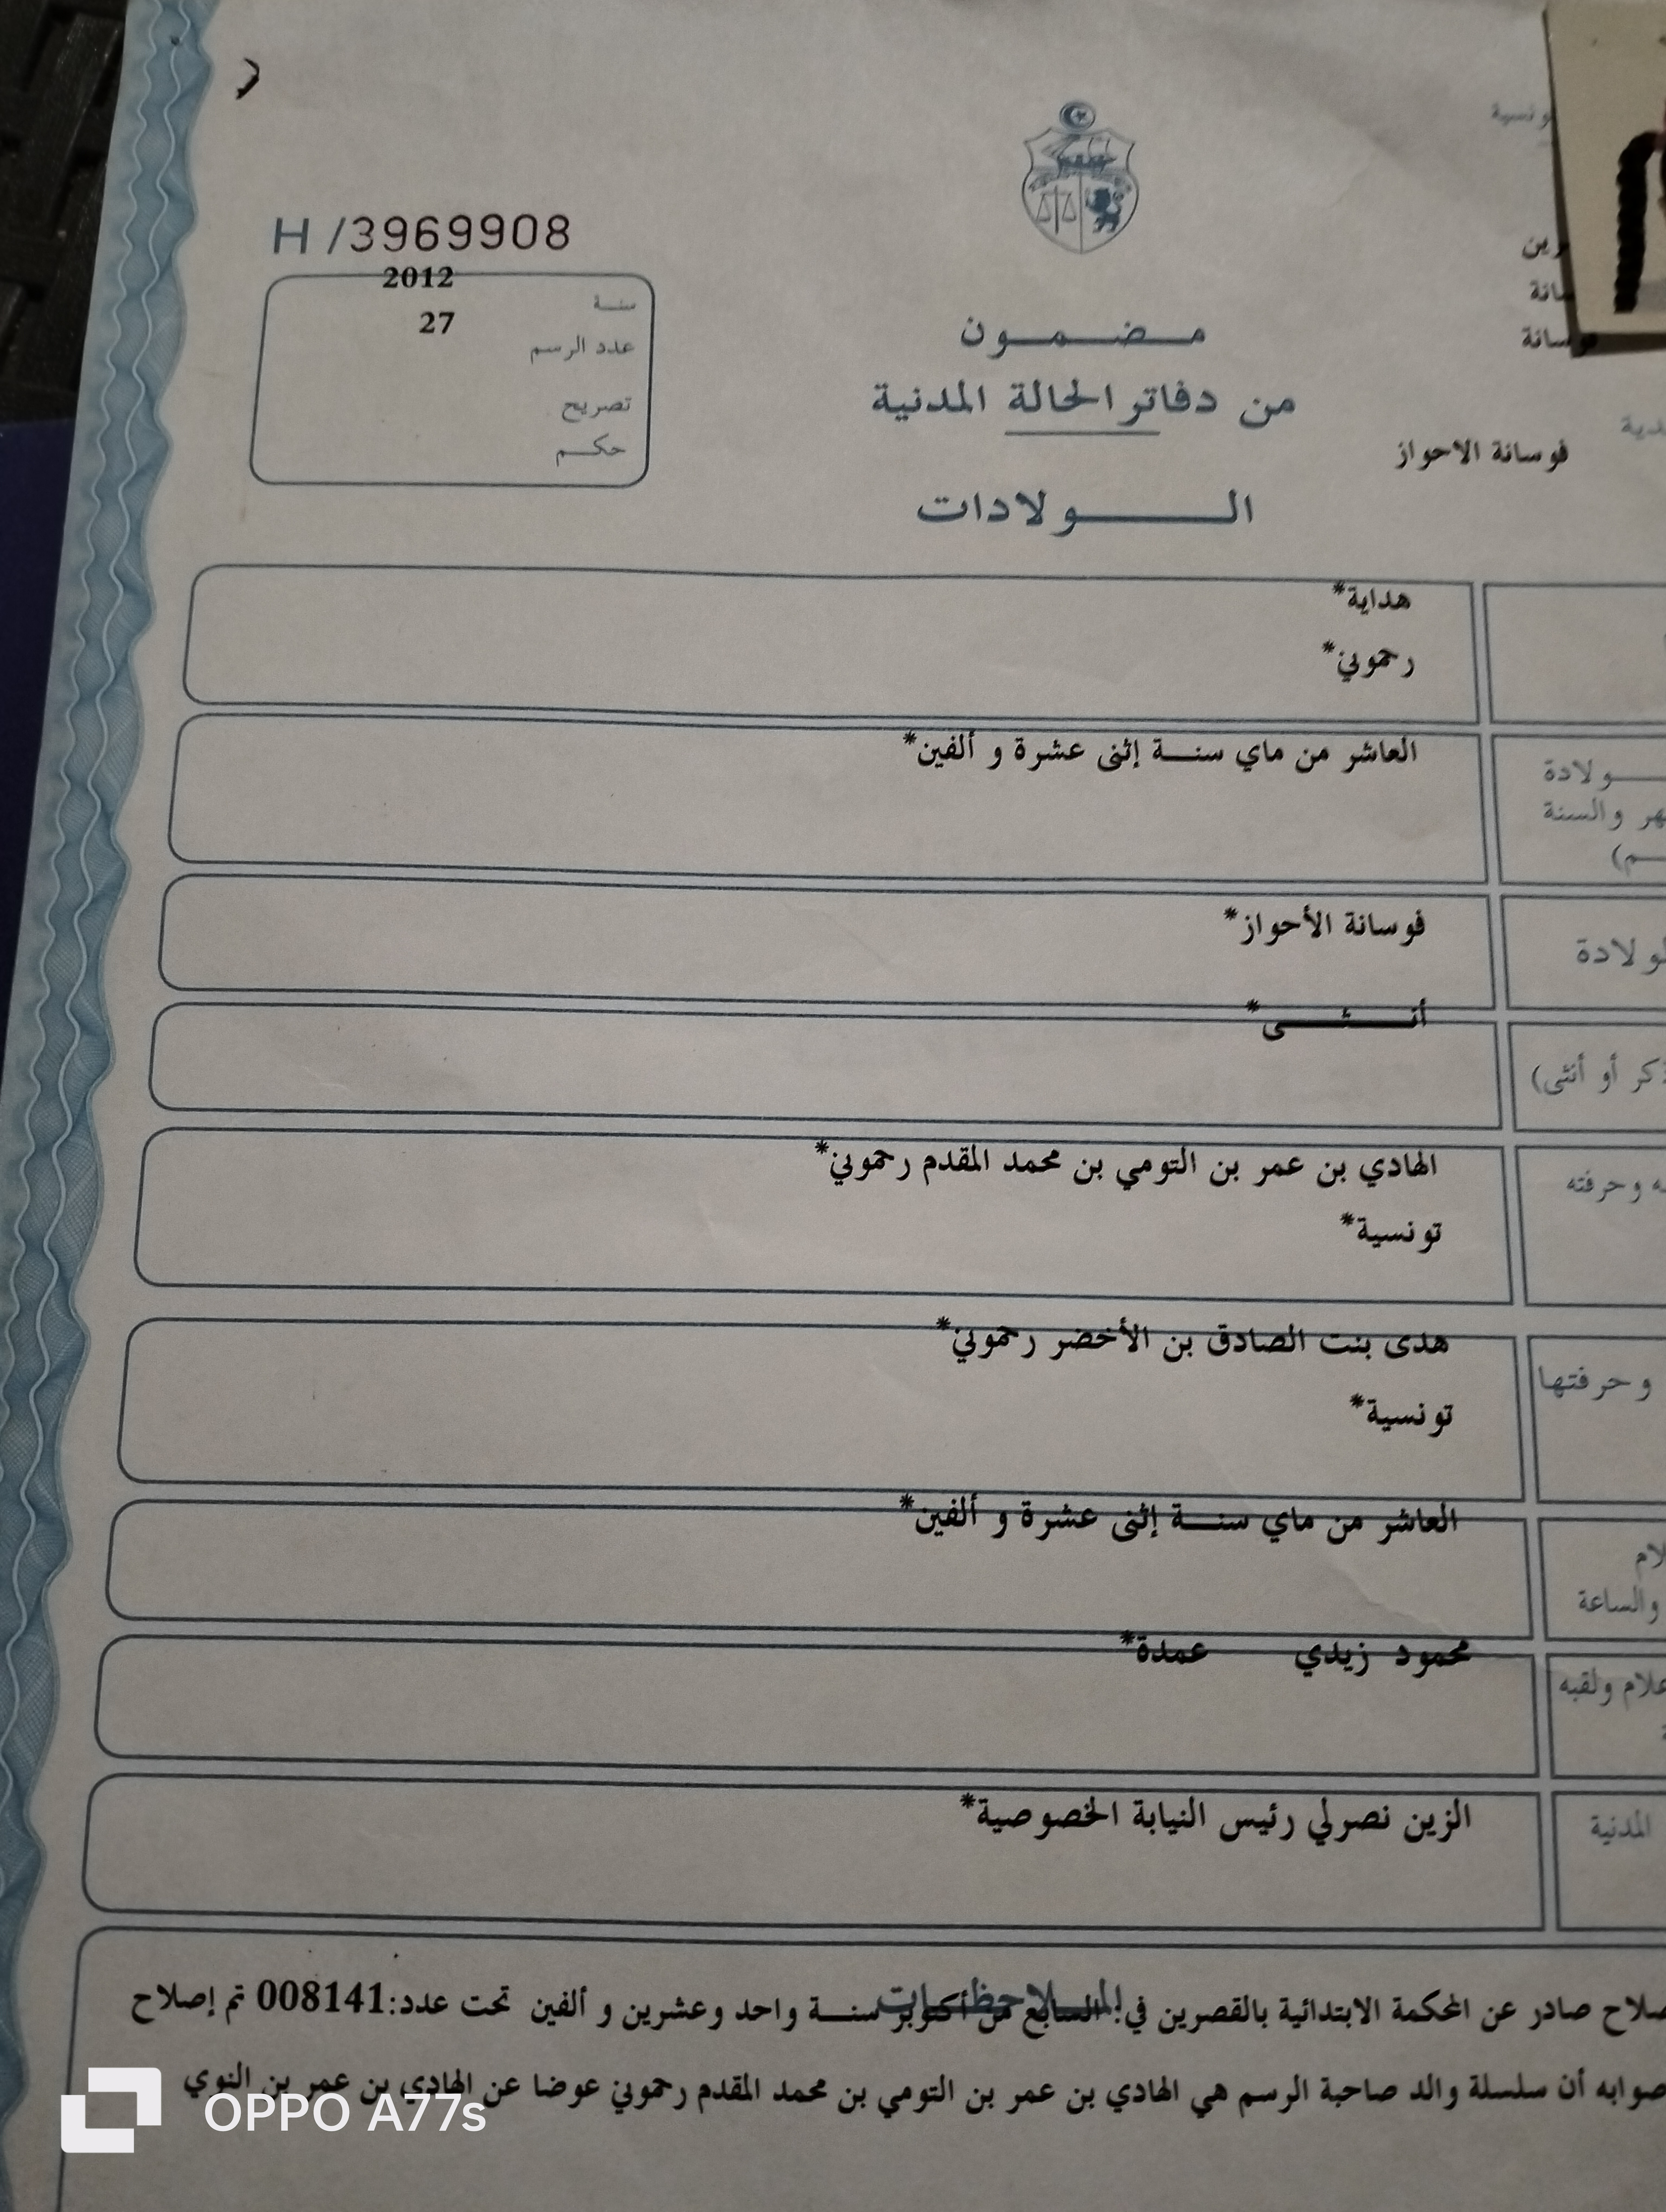 H /3969908
2012
سنة
27
عدد الرسم
تصريح
حكم
مضمون
من دفاتر الحالة المدنية
فوسانة الاحواز
الولادات
هداية*
رحموني*
العاشر من ماي سنة إثنى عشرة و ألفين*
ولادة
والسنة
فوسانة الأحواز*
أنثى*
أو أنثى)
الهادي بن عمر بن التومي بن محمد المقدم رحموني*
وحرفته
تونسية*
هدى بنت الصادق بن الأخضر رحموني*
وحرفتها
تونسية*
العاشر من ماي سنة إثنى عشرة و ألفين*
والساعة
محمود زيدي عمدة*
ولقبه
الزين نصرلي رئيس النيابة الخصوصية*
المدنية
الملاحظات
صادر عن المحكمة الابتدائية بالقصرين في: السابع من أكتوبر سنة واحد وعشرين و ألفين تحت عدد:008141 تم إصلاح
صوابه أن سلسلة والد صاحبة الرسم هي الهادي بن عمر بن التومي بن محمد المقدم رحموني عوضا عن الهادي بن عمر بن النوي
OPPO A77s